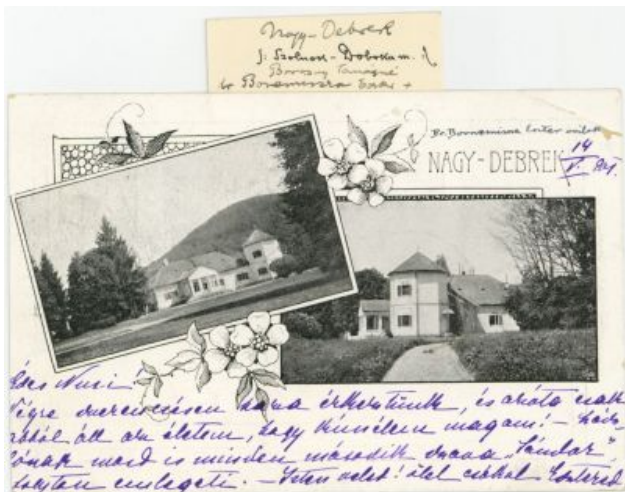 Nagy-Debrek
Szolnok-Doboka m.
br Bornemissza Eszter
Br. Bornemissza Eszter
NAGY-DEBREK
14
V.
Édes Nusi!
Végre szerencsésen haza érkeztünk, és azóta csak
abból áll az életem, hogy kíméljem magam! –
most is minden második szava "Sándor",
folyton emlegeti. – Isten veled! ölel csókol Esztered